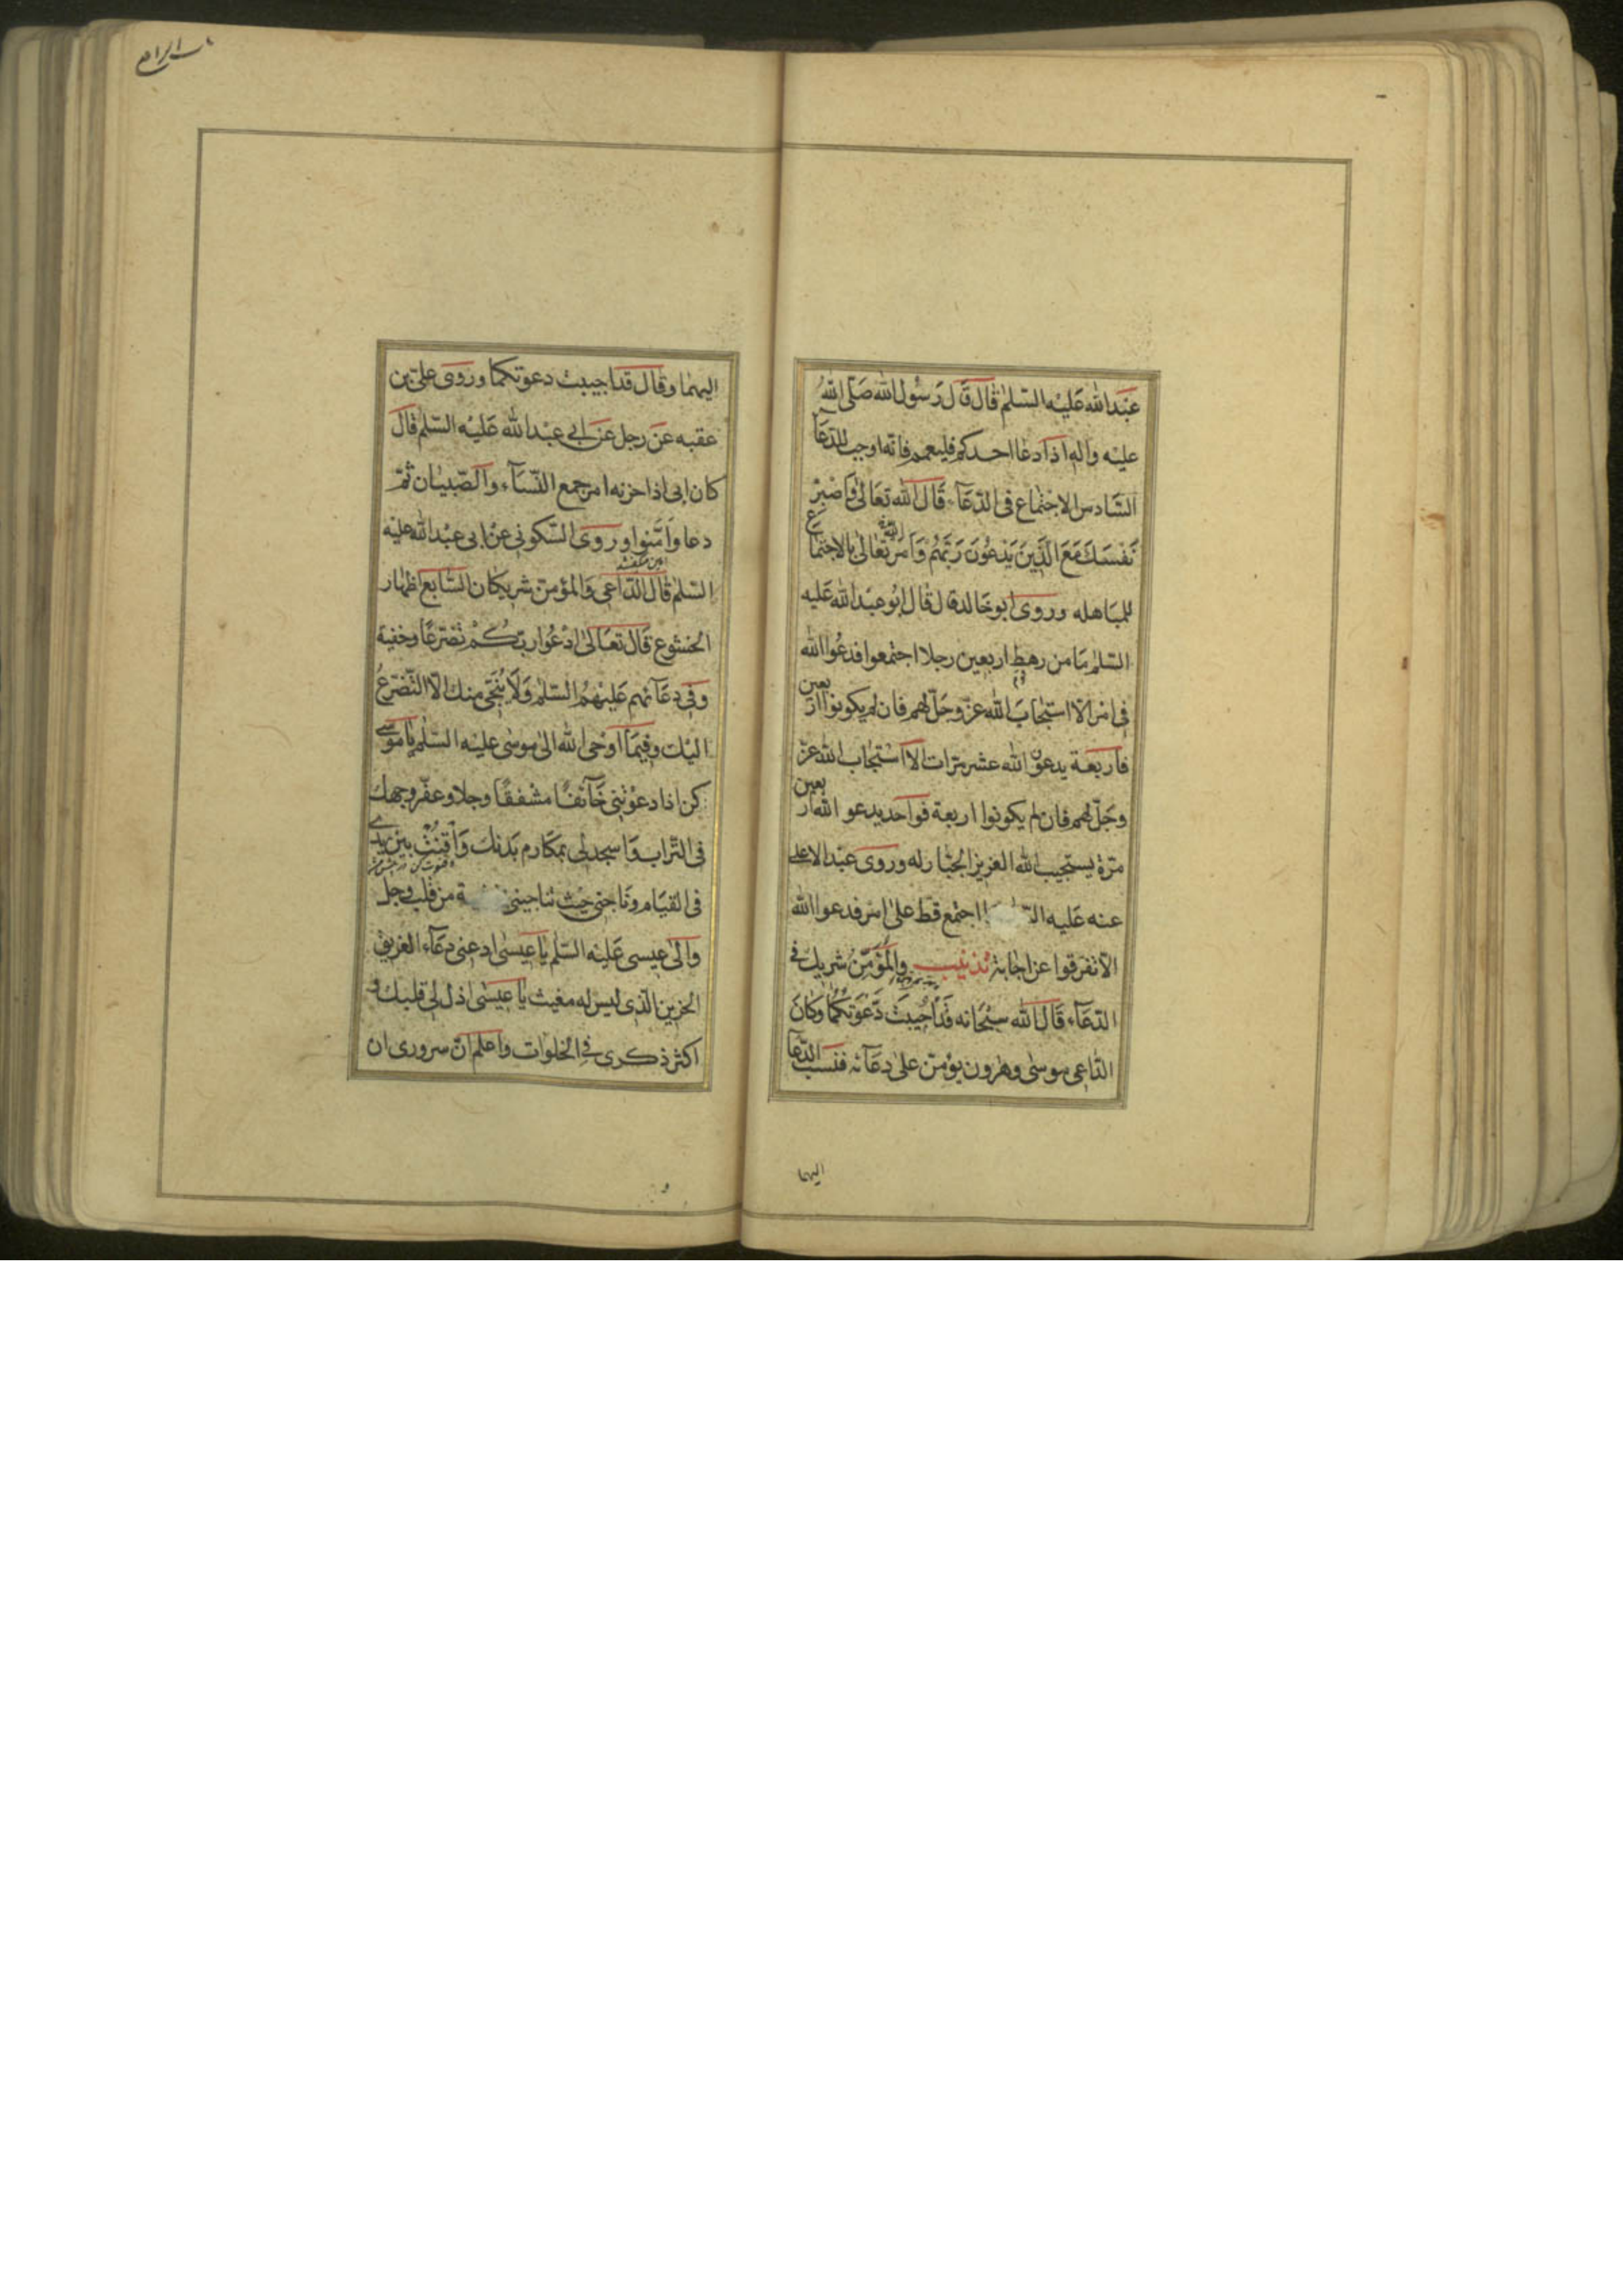 عبدالله عليه السلم قال قال رسول الله صلى الله
عليه واله اذا دعا احدكم فليعمم فانه اوجب للدعآ
السادس الاجتماع فى الدعآء قال الله تعالى واصبر
نفسك مع الذين يدعون ربهم وامر الله تعالى بالاجتماع
للمباهله وروى ابو خالد قال قال ابو عبدالله عليه
السلم ما من رهط اربعين رجلا اجتمعوا فدعوا الله
فى امر الا استجاب الله عز وجل لهم فان لم يكونوا اربعين
فاربعة يدعون الله عشر مرات الا استجاب الله عز
وجل لهم فان لم يكونوا اربعة فواحد يدعو الله اربعين
مرة يستجيب الله العزيز الجبار له وروى عبد الاعلى
عنه عليه اجتمع قط على امر فدعوا الله
الا تفرقوا عن اجابة تذنيب والمؤمن شريك فى
الدعآء قال الله سبحانه قد اجيبت دعوتكما وكان
الداعى موسى وهرون يؤمن على دعآئه فنسب الدعا
اليهما
اليهما وقال قد اجيبت دعوتكما وروى على بن
عقبه عن رجل عن ابى عبدالله عليه السلم قال
كان ابى اذا حزنه امر جمع النسآء والصبيان ثم
دعا وامنوا وروى السكونى عن ابى عبدالله عليه
السلم قال الداعى والمؤمن شريكان السابع اظهار
الخشوع قال تعالى ادعوا ربكم تضرعا وخفية
وفى دعآئهم عليهم السلم ولا ينجى منك الا التضرع
اليك وفيما اوحى الله الى موسى عليه السلم يا موسى
كن اذا دعوتنى خآئفا مشفقا وجلا وعفر وجهك
فى التراب واسجد لى بمكارم بدنك واقنت بين يدى
فى القيام وناجنى حيث تناجينى من قلب وجل
والى عيسى عليه السلم يا عيسى ادعنى دعآء الغريق
الحزين الذى ليس له مغيث يا عيسى اذل لى قلبك و
اكثر ذكرى فى الخلوات واعلم ان سرورى ان